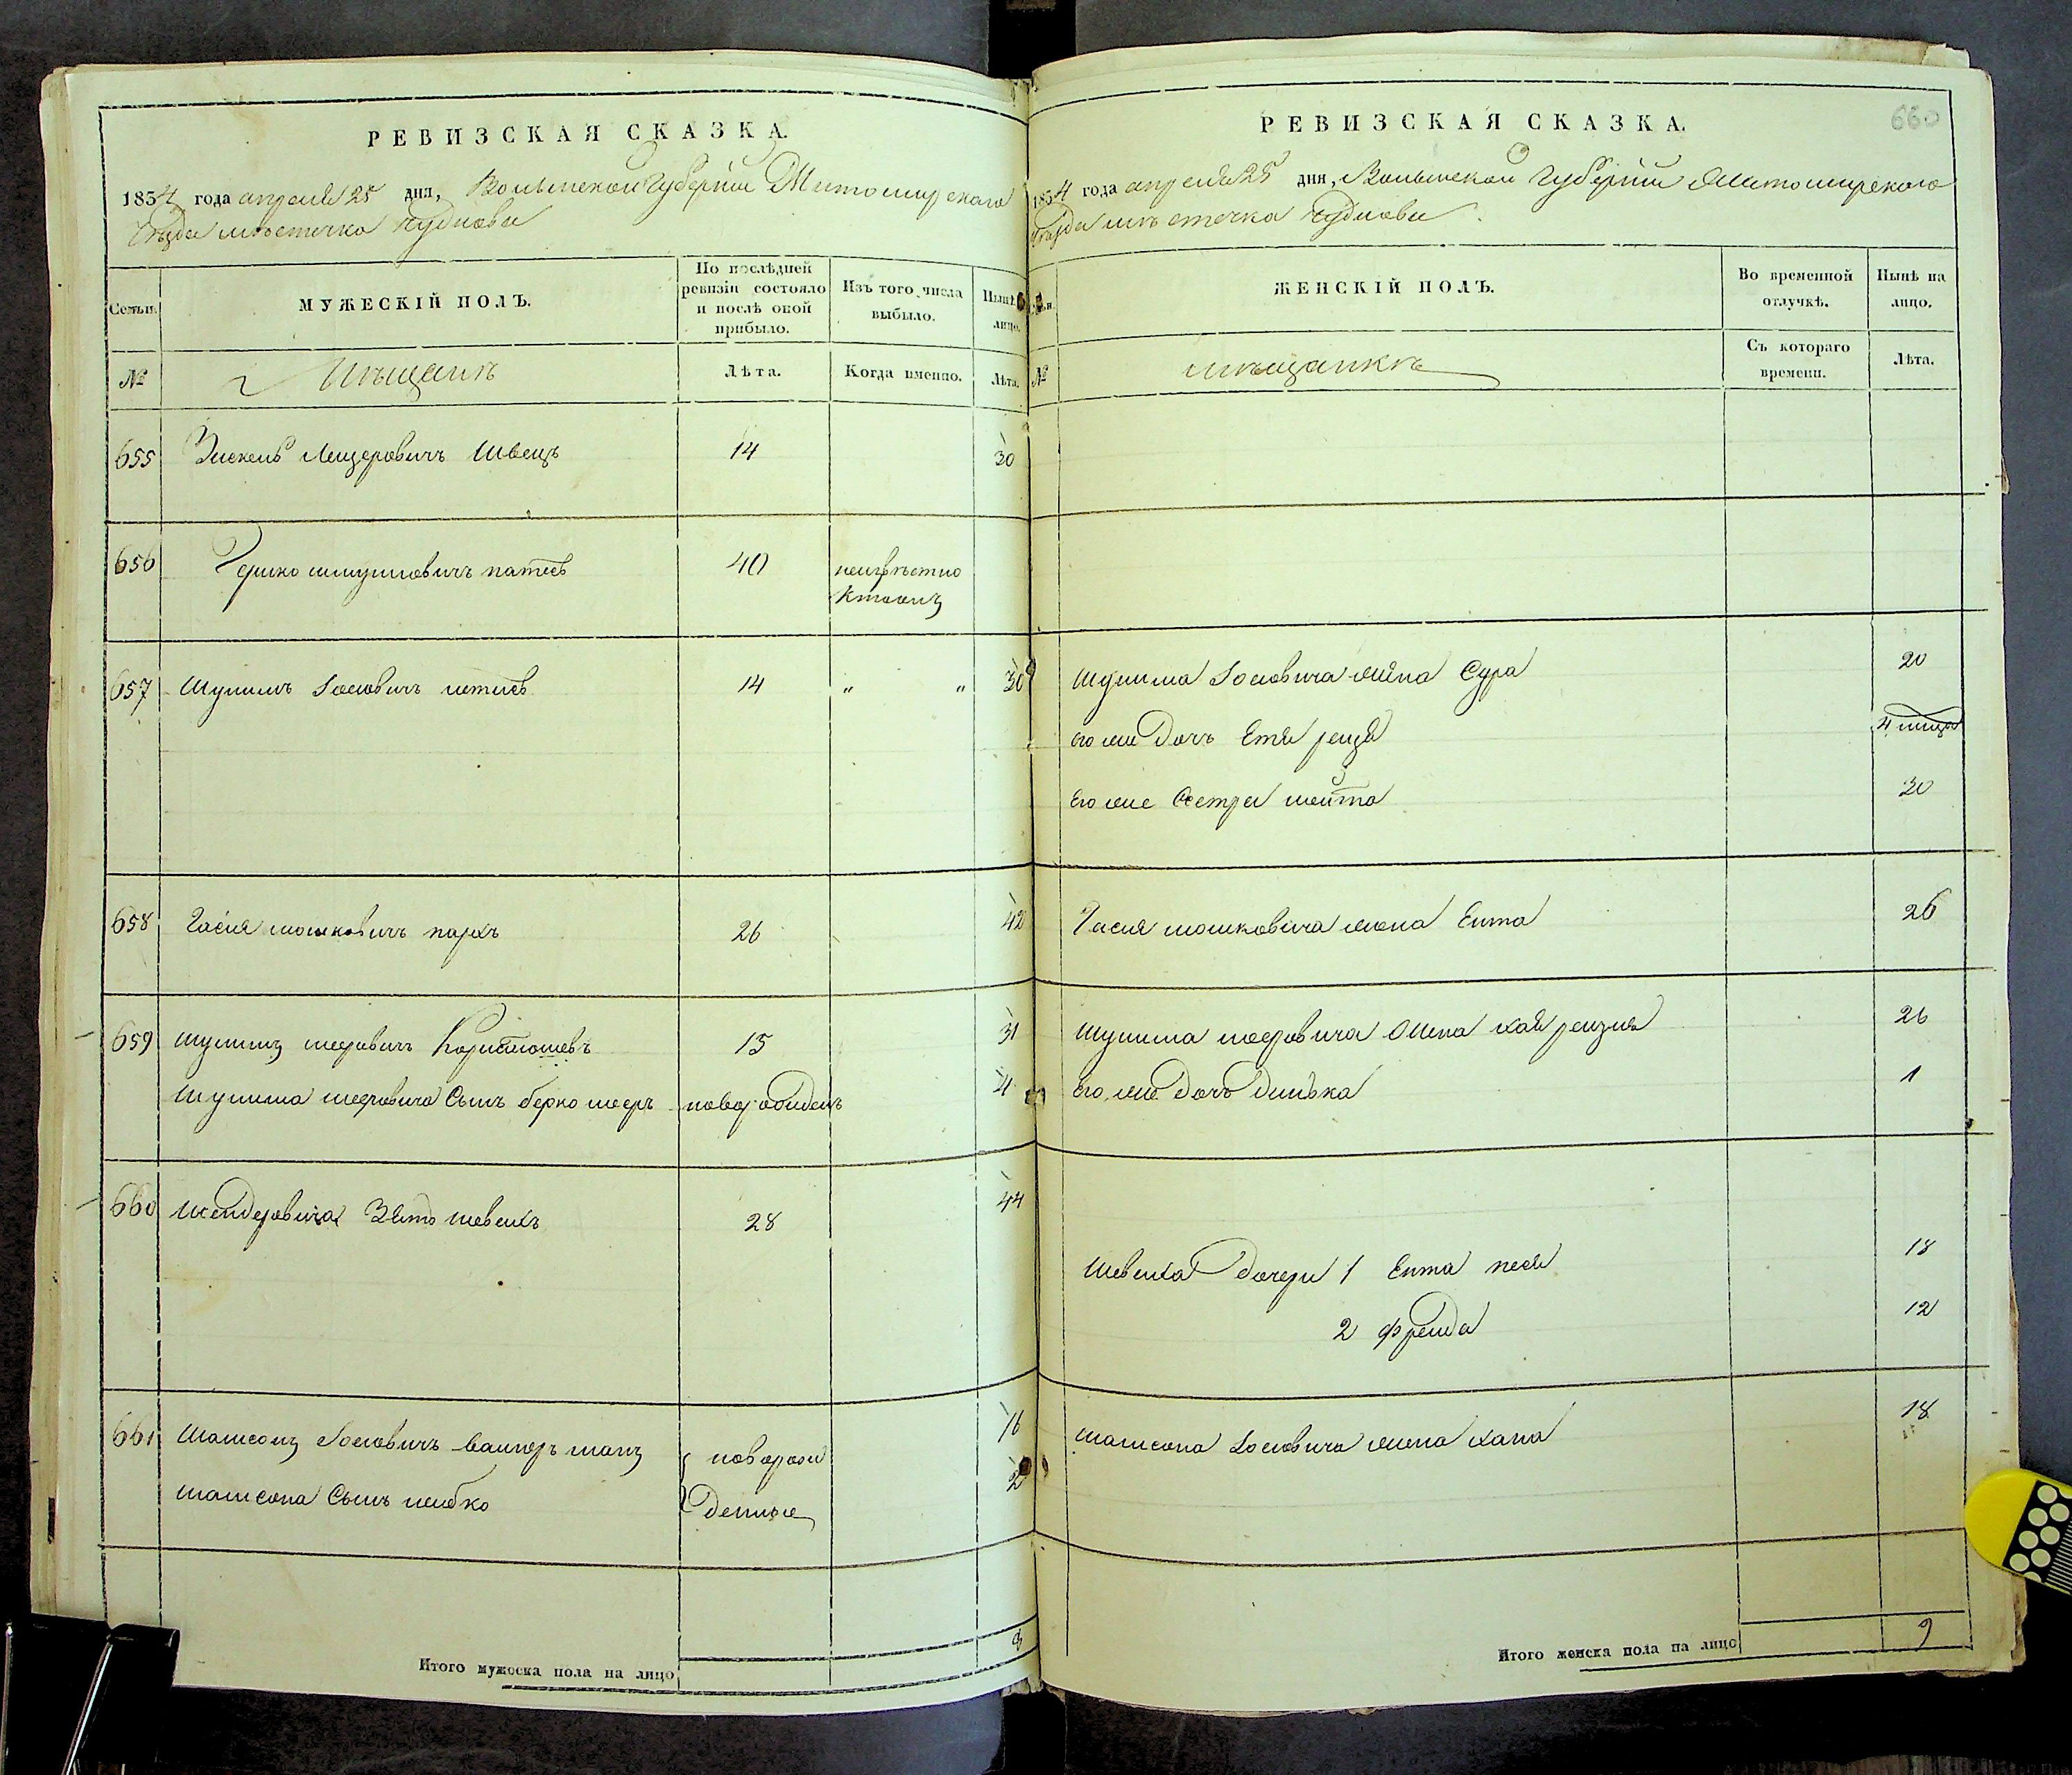 РЕВИЗСКАЯ СКАЗКА.
1854 года апреля 25 дня, Волынской Губернiи Житомирскаго
Уѣзда мѣстечка Чуднова
Семьи.
МУЖЕСКIЙ ПОЛЪ.
По послѣдней ревизiи состояло и послѣ оной прибыло.
Изъ того числа выбыло.
Нынѣ на лицо.
№
Мѣщанъ
Лѣта.
Когда именно.
Лѣта.
655 Лейзеровичъ Швецъ 14 30
656 Гершко шмулиовичъ 40 неизвѣстно
657 Шулимъ Iосиовичъ 14 " " 30
658 Гасия мошковичъ 26 42
659 Шулимъ мееровичъ 15 31
Шулима мееровича Сынъ берко мееръ новорожденъ 4
660 Шендеровича Зять шевель 28 44
661 Шамсонъ Iосиовичъ 16
новорож
Шамсона Сынъ лейбко 2
денные
Итого мужеска пола на лицо 8
РЕВИЗСКАЯ СКАЗКА.
660
1854 года апреля 25 дня, Волынской Губернiи Житомирскаго
Уѣзда мѣстечка Чуднова
ЖЕНСКIЙ ПОЛЪ.
Во временной отлучкѣ.
Нынѣ на лицо.
№
мѣщанкъ
Съ котораго времени.
Лѣта.
Шулима Iосиовича жена Сура 20
его же Дочь Етя рейзя 4
Его же Сестра шейта 30
Гасия мошковича жена Ента 26
Шулима мееровича жена хая рейзия 26
Его же Дочь Динька 1
Шевеля Дочери 1 Ента песя 18
2 фрейда 12
Шамсона Iосиовича жена хана 18
Итого женска пола на лицо 9